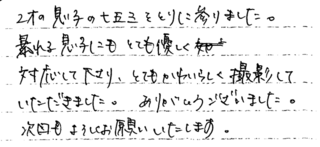 2才の息子の七五三をとりに参りました。
暴れる息子にもとても優しく
対応して下さり、とてもかわいらしく撮影して
いただきました。ありがとうございました。
次回もよろしくお願いいたします。